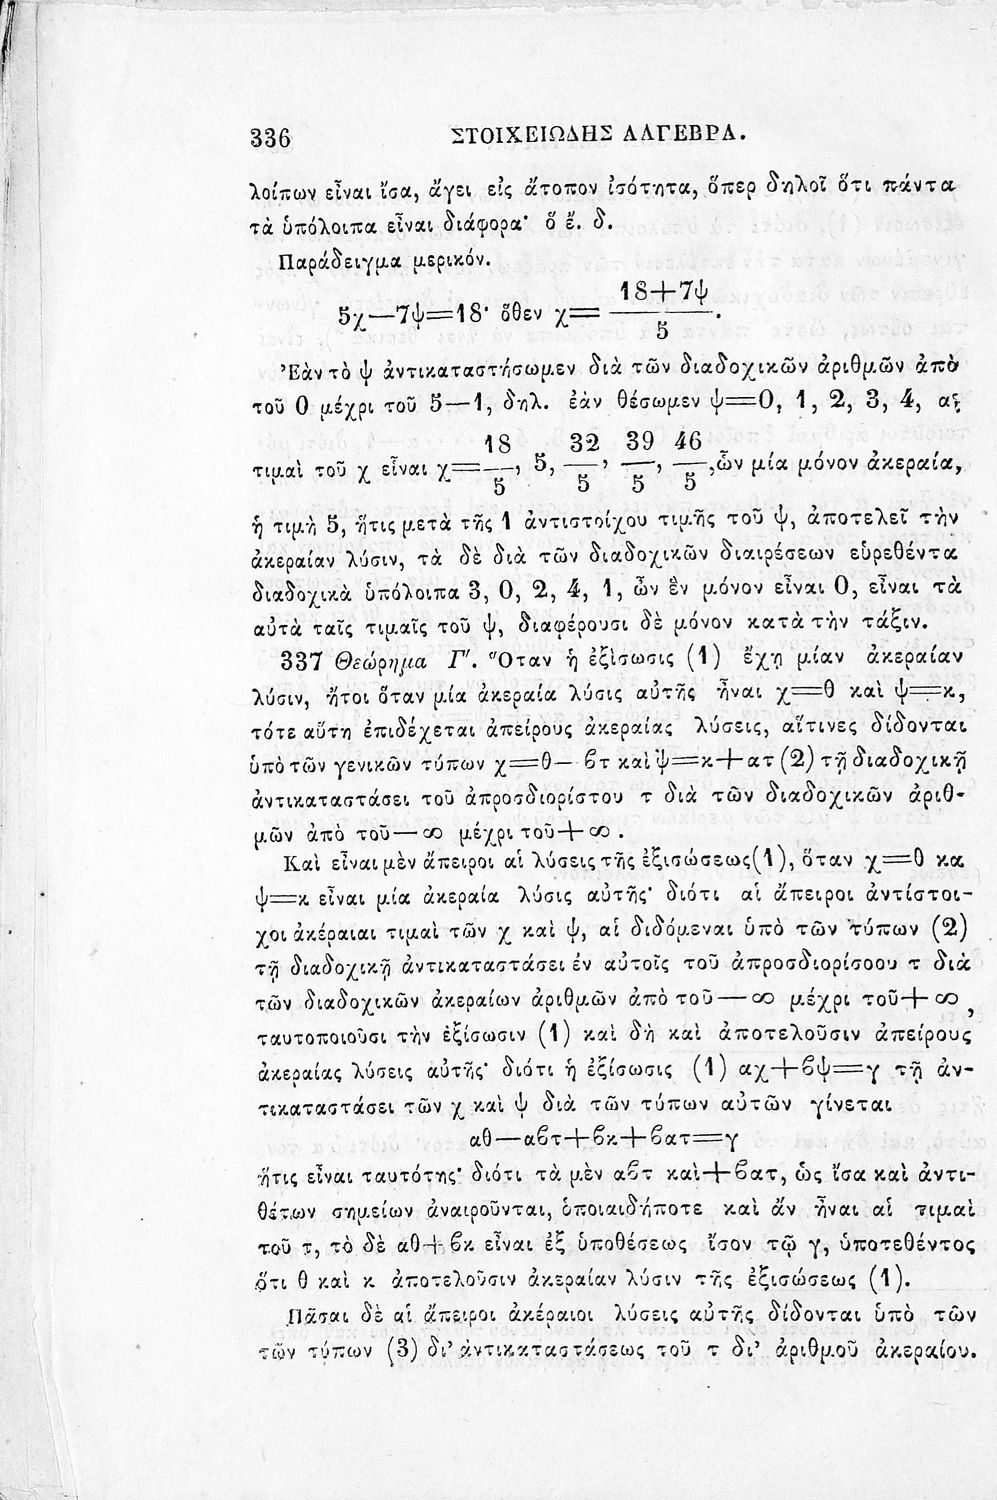 336 ΣΤΟΙΧΕΙΩΔΗΣ ΑΛΓΕΒΡΑ.
λοίπων εἶναι ἴσα, ἄγει εἰς ἄτοπον ἰσότητα, ὅπερ δηλοῖ ὅτι πάντα
τὰ ὑπόλοιπα εἶναι διάφορα· ὅ ἔ. δ.
Παράδειγμα μερικόν.
5χ—7ψ=18· ὅθεν χ= 18+7ψ/5.
Ἐὰν τὸ ψ ἀντικαταστήσωμεν διὰ τῶν διαδοχικῶν ἀριθμῶν ἀπὸ
τοῦ 0 μέχρι τοῦ 5—1, δηλ. ἐὰν θέσωμεν ψ=0, 1, 2, 3, 4, αἱ
τιμαὶ τοῦ χ εἶναι χ=18/5, 5, 32/5, 39/5, 46/5, ὧν μία μόνον ἀκεραία,
ἡ τιμὴ 5, ἥτις μετὰ τῆς 1 ἀντιστοίχου τιμῆς τοῦ ψ, ἀποτελεῖ τὴν
ἀκεραίαν λύσιν, τὰ δὲ διὰ τῶν διαδοχικῶν διαιρέσεων εὑρεθέντα
διαδοχικὰ ὑπόλοιπα 3, 0, 2, 4, 1, ὧν ἓν μόνον εἶναι 0, εἶναι τὰ
αὐτὰ ταῖς τιμαῖς τοῦ ψ, διαφέρουσι δὲ μόνον κατὰ τὴν τάξιν.
337 Θεώρημα Γ′. Ὅταν ἡ ἐξίσωσις (1) ἔχῃ μίαν ἀκεραίαν
λύσιν, ἤτοι ὅταν μία ἀκεραία λύσις αὐτῆς ἦναι χ=θ καὶ ψ=κ,
τότε αὕτη ἐπιδέχεται ἀπείρους ἀκεραίας λύσεις, αἵτινες δίδονται
ὑπὸ τῶν γενικῶν τύπων χ=θ—βτ καὶ ψ=κ+ατ (2) τῇ διαδοχικῇ
ἀντικαταστάσει τοῦ ἀπροσδιορίστου τ διὰ τῶν διαδοχικῶν ἀριθ-
μῶν ἀπὸ τοῦ—∞ μέχρι τοῦ+∞.
Καὶ εἶναι μὲν ἄπειροι αἱ λύσεις τῆς ἐξισώσεως(1), ὅταν χ=θ κα
ψ=κ εἶναι μία ἀκεραία λύσις αὐτῆς· διότι αἱ ἄπειροι ἀντίστοι-
χοι ἀκέραιαι τιμαὶ τῶν χ καὶ ψ, αἱ διδόμεναι ὑπὸ τῶν τύπων (2)
τῇ διαδοχικῇ ἀντικαταστάσει ἐν αὐτοῖς τοῦ ἀπροσδιορίσοου τ διὰ
τῶν διαδοχικῶν ἀκεραίων ἀριθμῶν ἀπὸ τοῦ—∞ μέχρι τοῦ+∞,
ταυτοποιοῦσι τὴν ἐξίσωσιν (1) καὶ δὴ καὶ ἀποτελοῦσιν ἀπείρους
ἀκεραίας λύσεις αὐτῆς· διότι ἡ ἐξίσωσις (1) αχ+βψ=γ τῇ ἀν-
τικαταστάσει τῶν χ καὶ ψ διὰ τῶν τύπων αὐτῶν γίνεται
αθ—αβτ+βκ+βατ=γ
ἥτις εἶναι ταυτότης· διότι τὰ μὲν αβτ καὶ+βατ, ὡς ἴσα καὶ ἀντι-
θέτων σημείων ἀναιροῦνται, ὁποιαιδήποτε καὶ ἄν ἦναι αἱ τιμαὶ
τοῦ τ, τὸ δὲ αθ+βκ εἶναι ἐξ ὑποθέσεως ἴσον τῷ γ, ὑποτεθέντος
ὅτι θ καὶ κ ἀποτελοῦσιν ἀκεραίαν λύσιν τῆς ἐξισώσεως (1).
Πᾶσαι δὲ αἱ ἄπειροι ἀκέραιοι λύσεις αὐτῆς δίδονται ὑπὸ τῶν
τῶν τύπων (3) δι' ἀντικαταστάσεως τοῦ τ δι' ἀριθμοῦ ἀκεραίου.